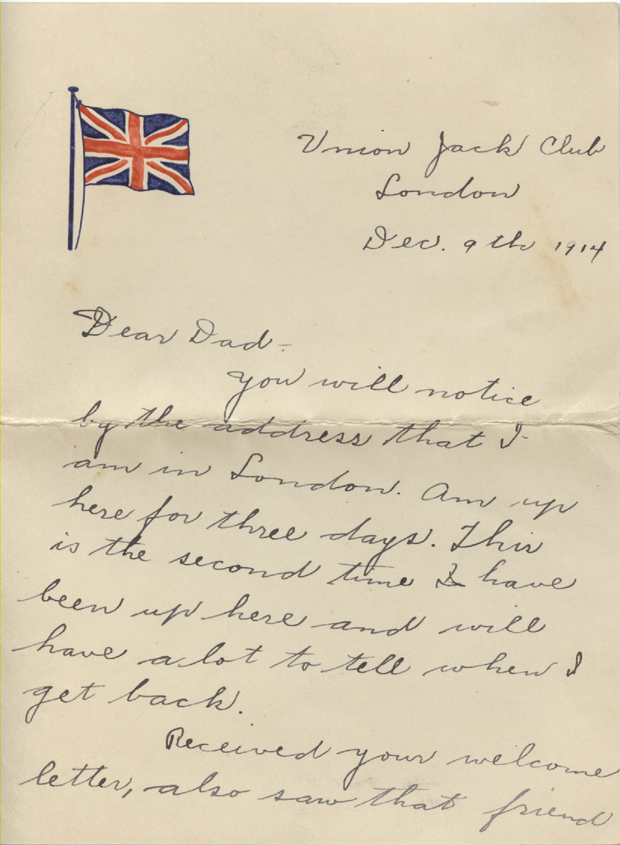 Union Jack Club
London
Dec. 9th 1914
Dear Dad-
You will notice
by the address that I
am in London. Am up
here for three days. This
is the second time I have
been up here and will
have a lot to tell when I
get back.
Received your welcome
letter, also saw that friend